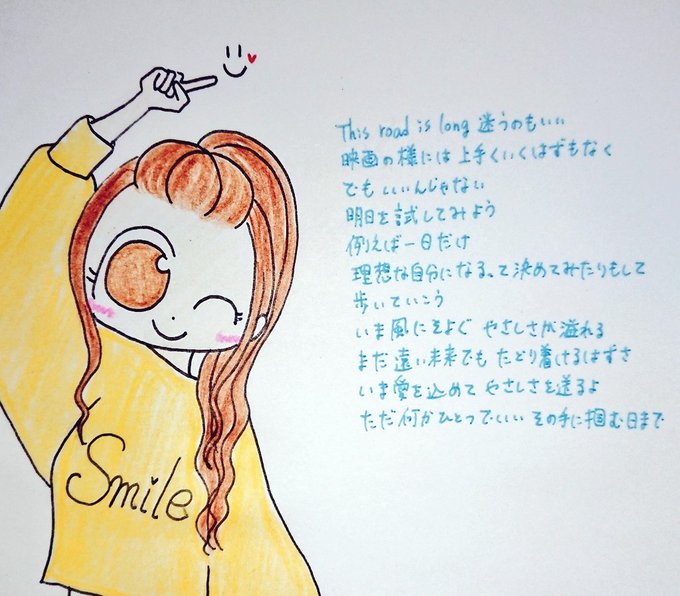 This road is long 迷うのもいい
映画の様には上手くいくはずもなく
でもいいんじゃない
明日を試してみよう
例えば一日だけ
理想な自分になるって決めてみたりもして
歩いていこう
いま風にそよぐ やさしさが溢れる
まだ遠い未来でも たどり着けるはずさ
いま愛を込めて やさしさを送るよ
ただ何かひとつでいい その手に掴む日まで
Smile